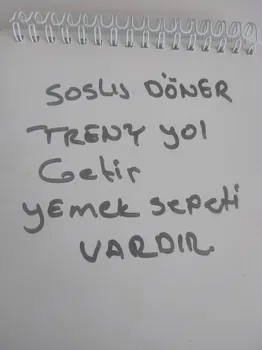 SOSLU DÖNER
TRENY yol
Getir
yemek sepeti
VARDIR